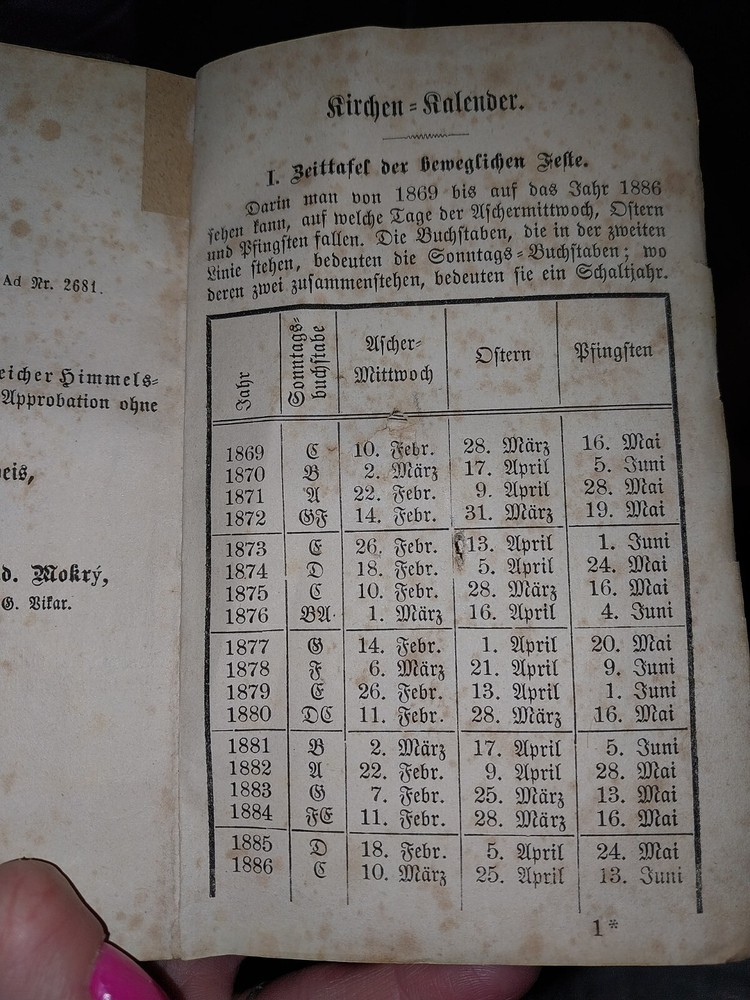 Ad Nr. 2681.
eicher Himmels=
Approbation ohne
eis,
d. Mokrý,
G. Vikar.
Kirchen=Kalender.
I. Zeittafel der beweglichen Feste.
Darin man von 1869 bis auf das Jahr 1886
sehen kann, auf welche Tage der Aschermittwoch, Ostern
und Pfingsten fallen. Die Buchstaben, die in der zweiten
Linie stehen, bedeuten die Sonntags=Buchstaben; wo
deren zwei zusammenstehen, bedeuten sie ein Schaltjahr.
Jahr Sonntags=buchstabe Ascher=Mittwoch Ostern Pfingsten
1869 C 10. Febr. 28. März 16. Mai
1870 B 2. März 17. April 5. Juni
1871 A 22. Febr. 9. April 28. Mai
1872 GF 14. Febr. 31. März 19. Mai
1873 E 26. Febr. 13. April 1. Juni
1874 D 18. Febr. 5. April 24. Mai
1875 C 10. Febr. 28. März 16. Mai
1876 BA 1. März 16. April 4. Juni
1877 G 14. Febr. 1. April 20. Mai
1878 F 6. März 21. April 9. Juni
1879 E 26. Febr. 13. April 1. Juni
1880 DC 11. Febr. 28. März 16. Mai
1881 B 2. März 17. April 5. Juni
1882 A 22. Febr. 9. April 28. Mai
1883 G 7. Febr. 25. März 13. Mai
1884 FE 11. Febr. 28. März 16. Mai
1885 D 18. Febr. 5. April 24. Mai
1886 C 10. März 25. April 13. Juni
1*